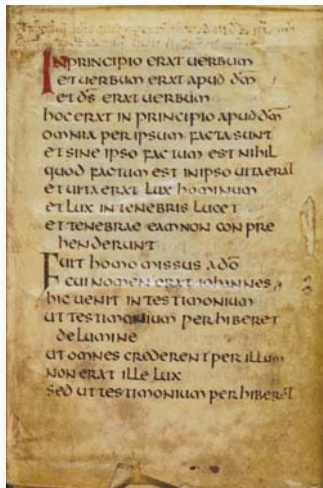 IN PRINCIPIO ERAT UERBUM
ET UERBUM ERAT APUD DM̄
ET DS̄ ERAT UERBUM
HOC ERAT IN PRINCIPIO APUD DM̄
OMNIA PER IPSUM FACTA SUNT
ET SINE IPSO FACTUM EST NIHIL
QUOD FACTUM EST IN IPSO UITA ERAT
ET UITA ERAT LUX HOMINUM
ET LUX IN TENEBRIS LUCET
ET TENEBRAE EAM NON CON PRE
HENDERUNT
FUIT HOMO MISSUS A DŌ
CUI NOMEN ERAT IOHANNES
HIC UENIT IN TESTIMONIUM
UT TESTIMONIUM PERHIBERET
DE LUMINE
UT OMNES CREDERENT PER ILLUM
NON ERAT ILLE LUX
SED UT TESTIMONIUM PERHIBERET